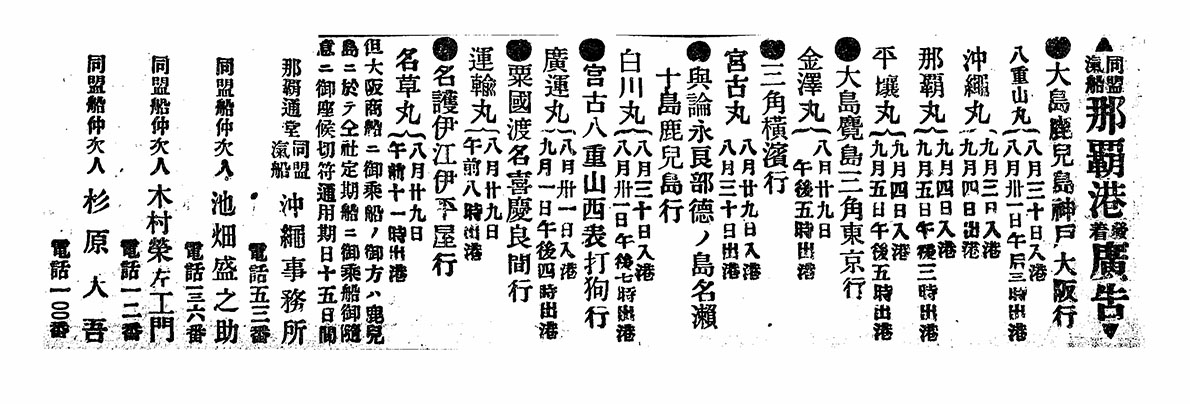 ▲同盟汽船那覇港發着廣告▼
●大島鹿兒島神戸大阪行
八重山丸 八月三十日入港 八月卅一日午后三時出港
沖繩丸 九月三日入港 九月四日出港
那覇丸 九月四日入港 九月五日午後三時出港
平壤丸 九月四日入港 九月五日午後五時出港
●大島鹿兒島三角東京行
金澤丸 八月廿九日 午後五時出港
●三角橫濱行
宮古丸 八月廿九日入港 八月三十日出港
●與論永良部德ノ島名瀬
十島鹿兒島行
白川丸 八月三十日入港 八月卅一日午後七時出港
●宮古八重山西表打狗行
廣運丸 八月卅一日入港 九月一日午後四時出港
●粟國渡名喜慶良間行
運輸丸 八月廿九日 午前八時出港
●名護伊江伊平屋行
名草丸 八月廿九日 午前十一時出港
但大阪商船ニ御乘船ノ御方ハ鹿兒
島ニ於テ仝社定期船ニ御乘船御隨
意ニ御座候切符通用期日十五日間
那覇通堂 同盟汽船 沖繩事務所
電話五三番
同盟船仲次人 池畑盛之助
電話一三六番
同盟船仲次人 木村榮左工門
電話一二番
同盟船仲次人 杉原大吾
電話一〇〇番